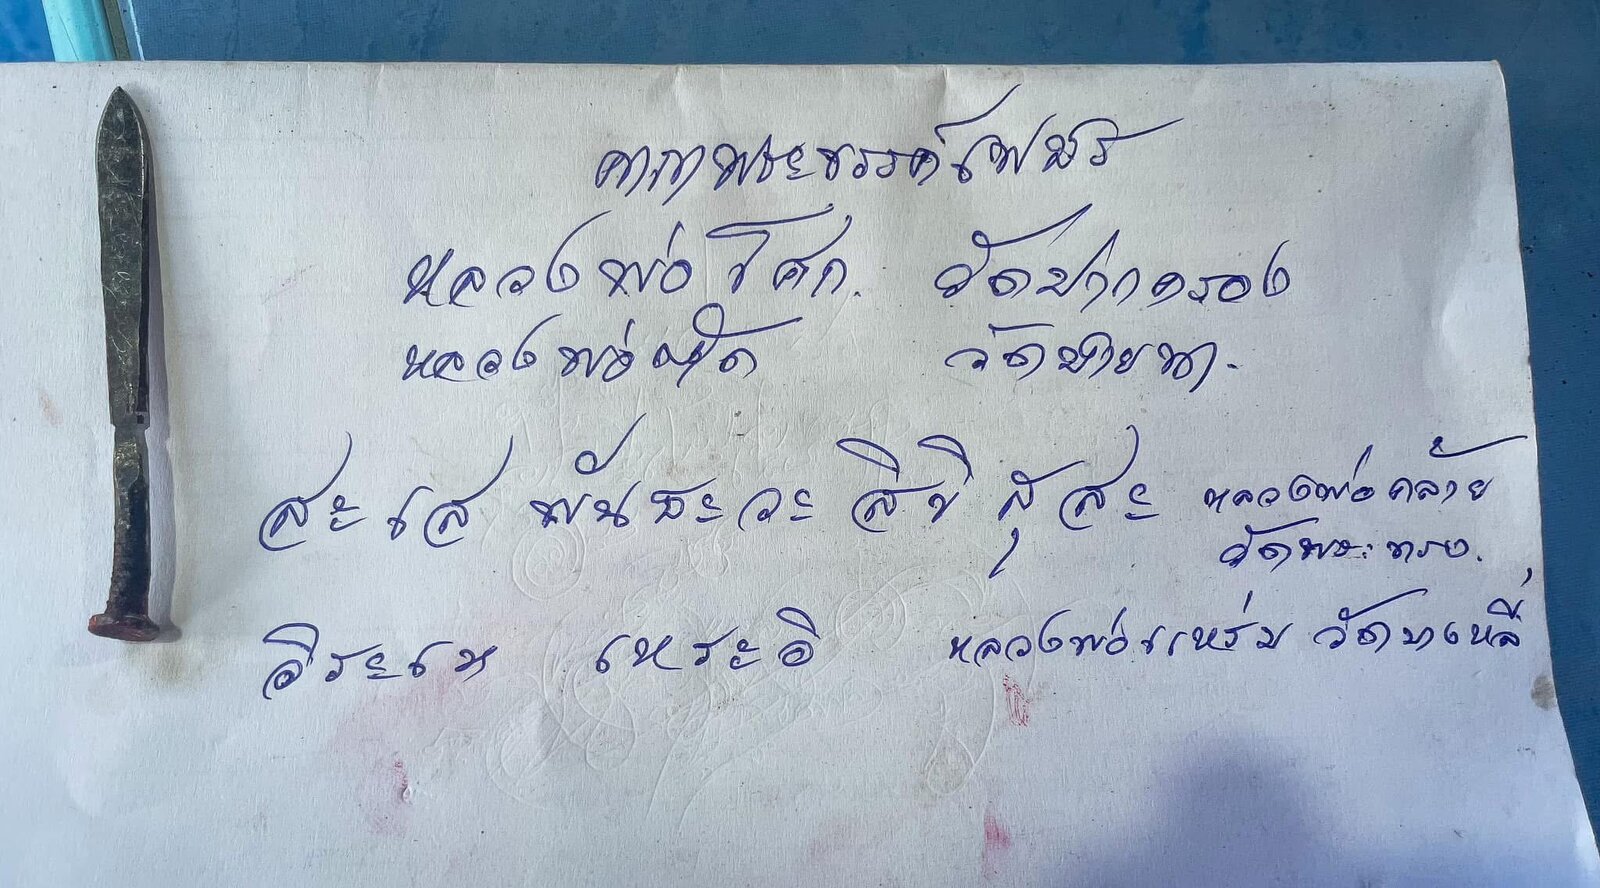 คาถาพระขรรค์โพธิ์
หลวงพ่อโศก. วัดปากคลอง
หลวงพ่อตัด วัดชายนา.
สะ เส พัน ธะ วะ สิ ขิ สุ สะ หลวงพ่อคล้าย
วัดพระทรง.
อิระเห เหระอิ หลวงพ่อแหร่ม วัดบางหลี่